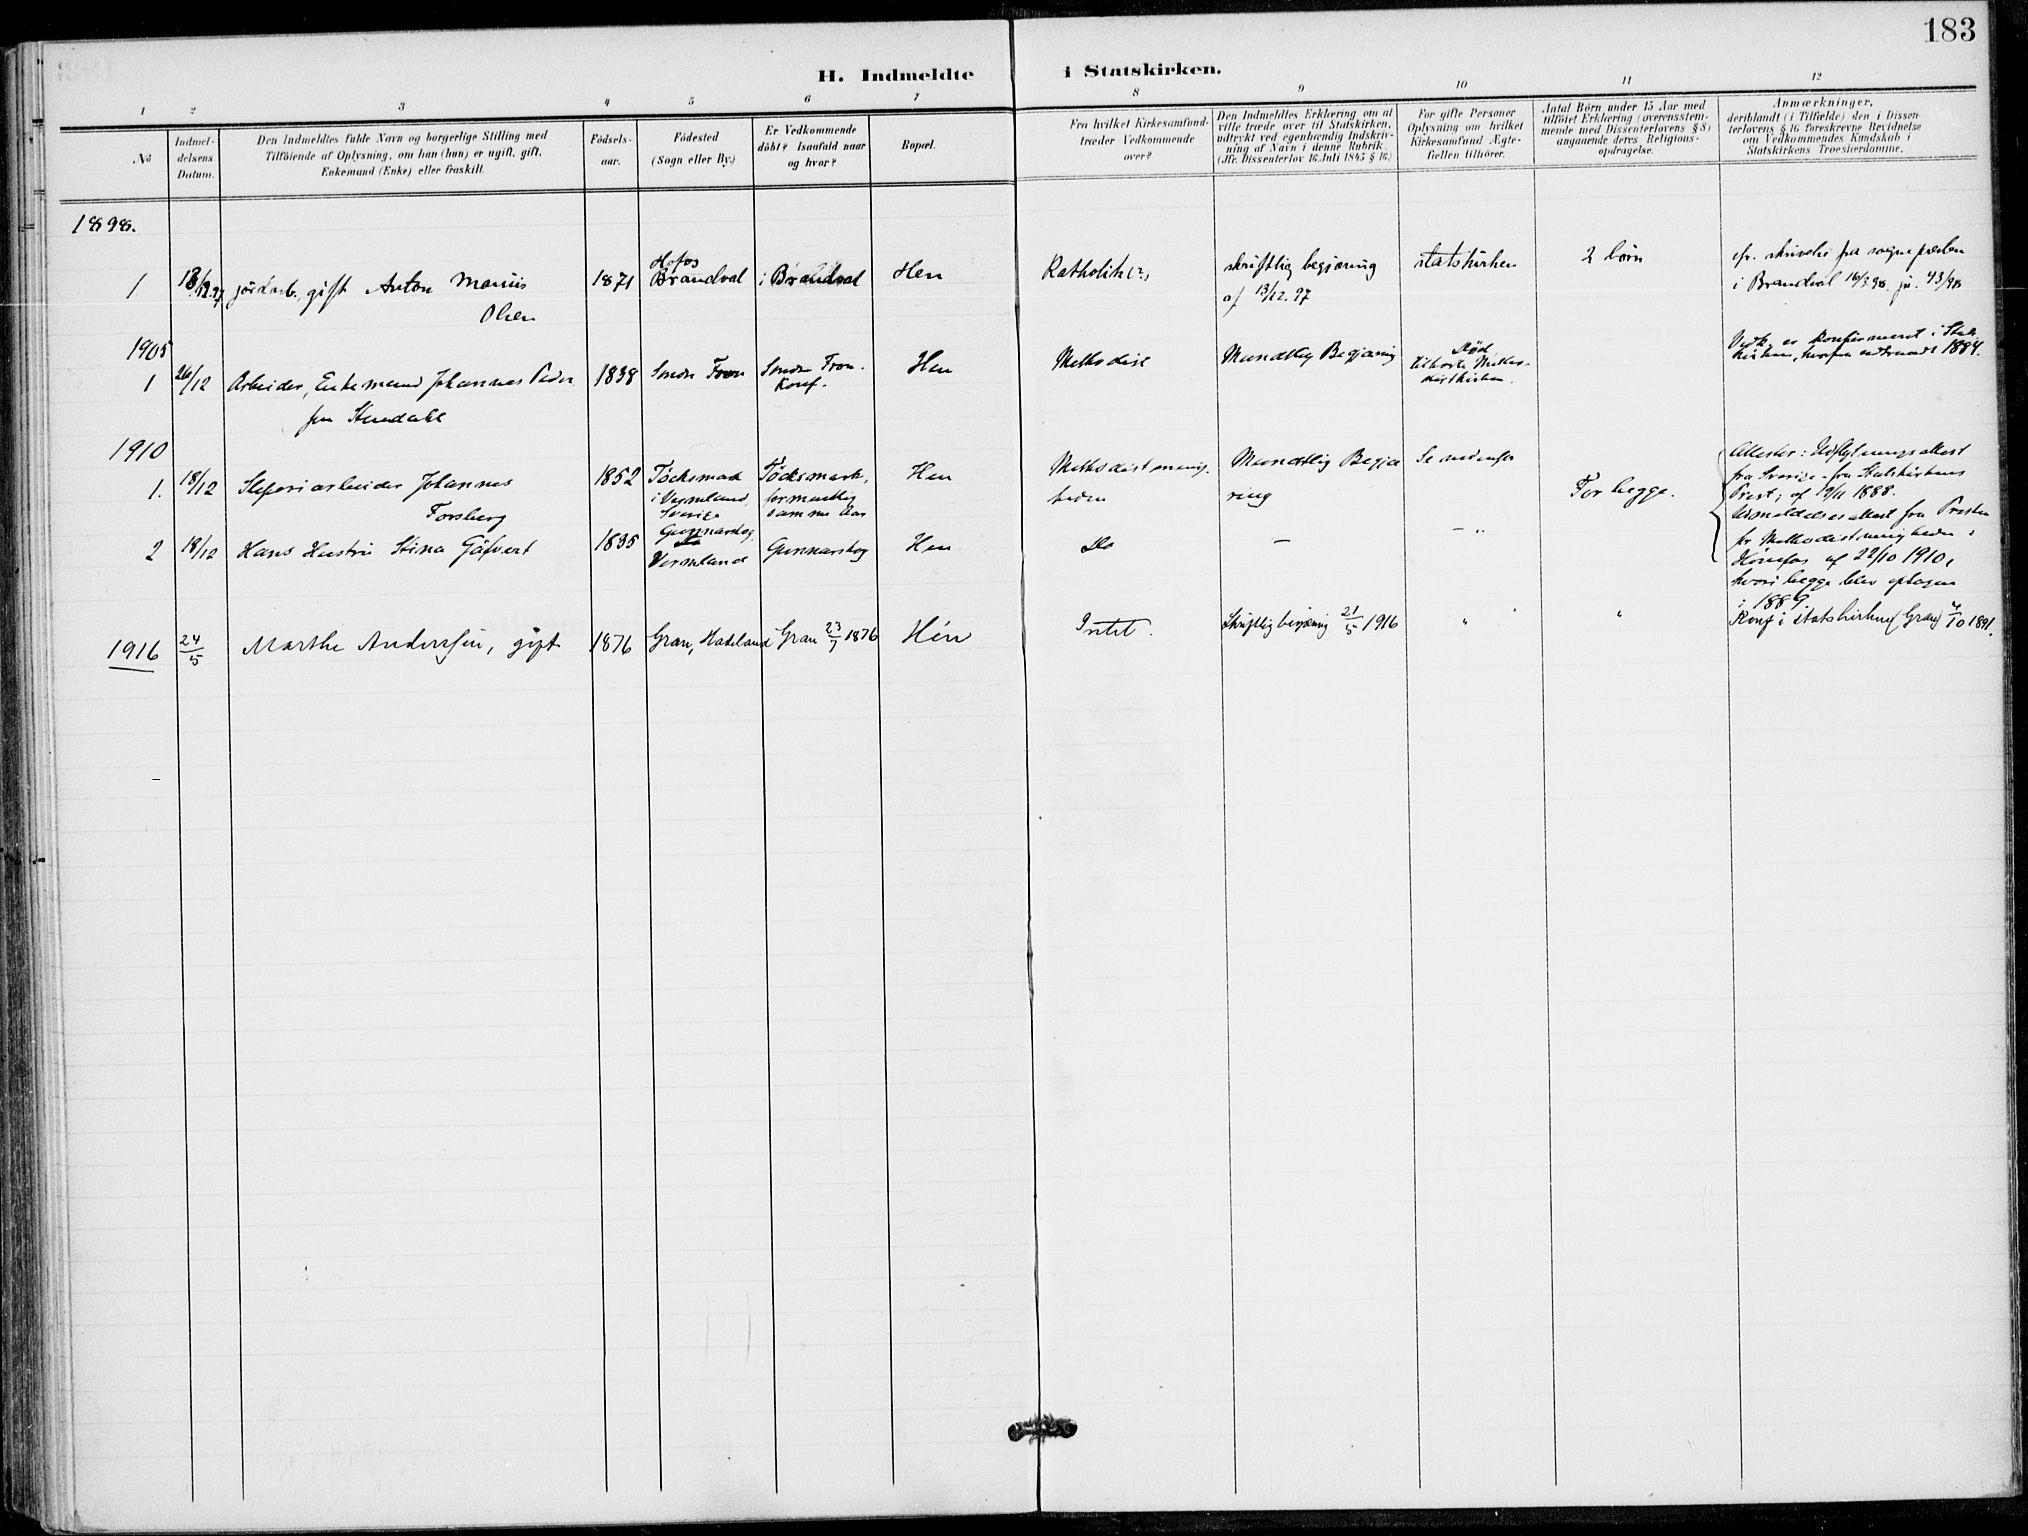 183
H. Indmeldte i Statskirken.
1 2 3 4 5 6 7 8 9 10 11 12
No
Indmel-
delsens
Datum.
Den Indmeldtes fulde Navn og borgerlige Stilling med
Tilföiende af Oplysning, om han (hun) er ugift, gift,
Enkemand (Enke) eller fraskilt.
Födsels-
aar.
Födested
(Sogn eller By.)
Er Vedkommende
döbt? Isaafald naar
og hvor?
Bopæl.
Fra hvilket Kirkesamfund
træder Vedkommende
over?
Den Indmeldtes Erklæring om at
ville træde over til Statskirken,
udtrykt ved egenhændig Indskriv-
ning af Navn i denne Rubrik.
(Jfr. Dissenterlov 16 Juli 1845 § 16.)
For gifte Personer
Oplysning om hvilket
Kirkesamfund Ægte-
fællen tilhörer.
Antal Börn under 15 Aar med
tilföiet Erklæring (overensstem-
mende med Dissenterlovens § 8)
angaaende deres Religions-
opdragelse.
Anmærkninger,
deriblandt (i Tilfælde) den i Dissen
terlovens § 16 foreskrevne Bevidnelse
om Vedkommendes Kundskab i
Statskirkens Troeslærdomme.
1898.
1
13/12.97
jordarb., gift Anton Marius
Olsen
1871
Hofos
Brandval
i Brandval
Hen
Katholik (?)
skriftlig begjæring
af 13/12.97
statskirken
2 börn
cfr. skrivelse fra sognepresten
i Brandval 16/3.98. jr. 43/98
1905
1
26/12
Arbeider, Enkemand Johannes Peder
sen Stendahl
1838
Sondre Fron
Sondre Fron.
Konf.
Hen
Methodist
Mundtlig Begjæring
Död
tilhørte Metho-
distkirken.
Vedk. er konfirmeret i Stats
kirken, hvorfra udtraadt 1884.
1910
1.
18/12
Sliperiarbeider Johannes
Forsberg
1852
Töcksmark
i Vermland,
Sverige
Töcksmark,
formentlig
samme Aar
Hen
Methodistmenig.
heden
Mundtlig Begjæ
ring
Se nedenfor
For begge.
Attester: Udflytningsattest
fra Sverige fra Statskirkens
Prest, af 19/11 1888.
Udmeldelsesattest fra Presten
for Methodistmenigheden i
Hønefos af 22/10 1910,
hvori begge blev optagen
i 1889.
2
18/12
Hans Hustru Stina Gäfvert
1835
Gunnarskog,
Vermland
Gunnarskog
Hen
Do
—
— "
1916
24/5
Marthe Anderssen, gift
1876
Gran, Hadeland
Gran 23/7 1876
Hén
Intet.
Skriftlig begjæring 21/5 1916
"
"
Konf i statskirken (Gran) 4/10 1891.